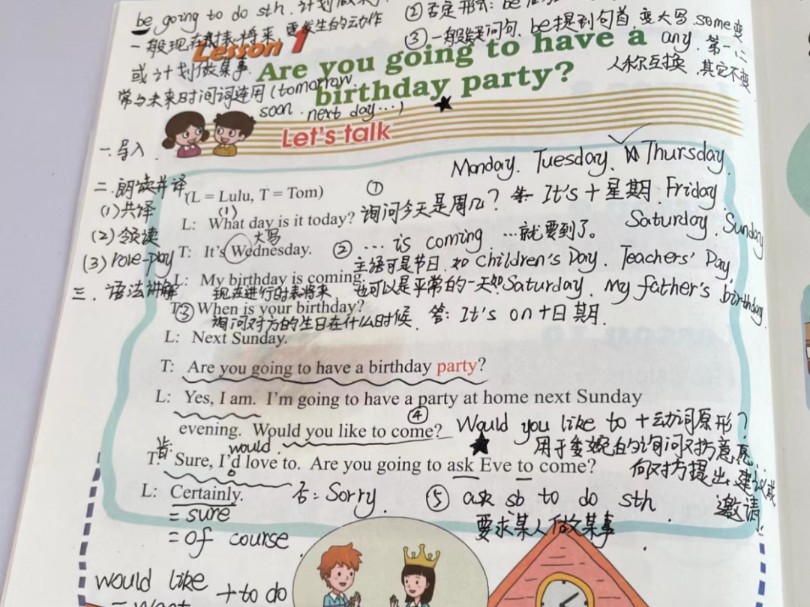 be going to do sth.
②否定形式: be
一般现在表将来, 要发生的动作
③一般疑问句, be提到句首, 变大写, some变
any. 第一二
或计划做某事.
人称互换, 其它不变
常与未来时间词连用 (tomorrow
soon. next day…)
Lesson 1
Are you going to have a
birthday party?
Let's talk
一. 导入.
Monday. Tuesday. Thursday.
二. 朗读并译
(1)共译
(2)领读
(3) role-play
三. 语法讲解
(L = Lulu, T = Tom)
(1)
L: What day is it today?
① 询问今天是周几? 答: It's + 星期. Friday.
Saturday. Sunday
大写
T: It's Wednesday.
② … is coming …就要到了。
主语可是节日. 如 Children's Day. Teachers' Day.
L: My birthday is coming.
现在进行时表将来. 也可以是平常的一天如Saturday. my father's birthday.
T: When is your birthday?
③ 询问对方的生日在什么时候. 答: It's on + 日期.
L: Next Sunday.
T: Are you going to have a birthday party?
L: Yes, I am. I'm going to have a party at home next Sunday
evening. Would you like to come?
④ Would you like to + 动词原形?
用于委婉的询问对方意愿,
向对方提出建议或
邀请.
肯:
would.
T: Sure, I'd love to. Are you going to ask Eve to come?
L: Certainly.
否: Sorry.
⑤ ask sb to do sth
要求某人做某事.
= sure
= of course.
would like + to do
= want